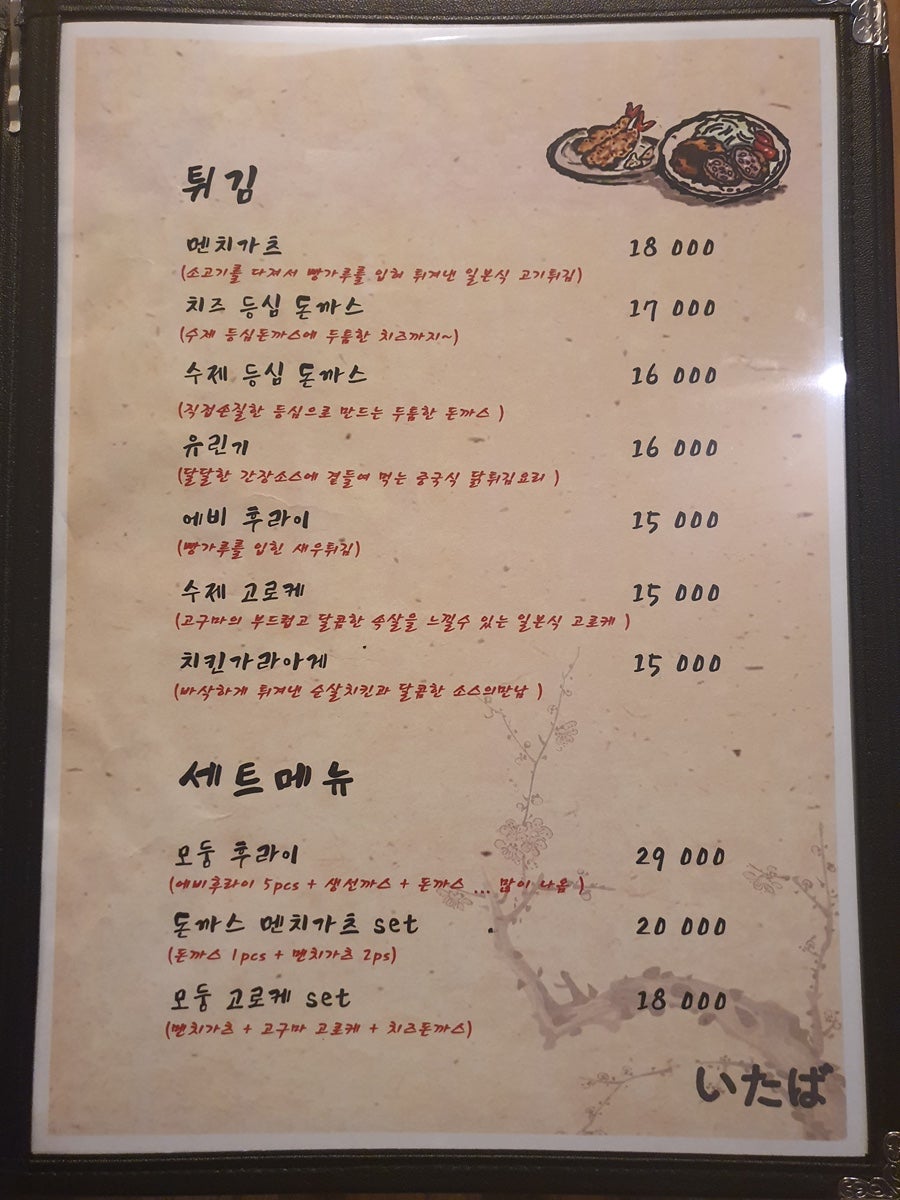 튀김
멘치가츠 18 000
(소고기를 다져서 빵가루를 입혀 튀겨낸 일본식 고기튀김)
치즈 등심 돈까스 17 000
(수제 등심돈까스에 두툼한 치즈까지~)
수제 등심 돈까스 16 000
(직접손질한 등심으로 만드는 두툼한 돈까스 )
유린기 16 000
(달달한 간장소스에 곁들여 먹는 중국식 닭튀김요리 )
에비 후라이 15 000
(빵가루를 입힌 새우튀김)
수제 고로케 15 000
(고구마의 부드럽고 달콤한 속살을 느낄수 있는 일본식 고로케 )
치킨가라아게 15 000
(바삭하게 튀겨낸 순살치킨과 달콤한 소스의만남 )
세트메뉴
모둠 후라이 29 000
(에비후라이 5pcs + 생선까스 + 돈까스 ... 많이 나옴 )
돈까스 멘치가츠 set 20 000
(돈까스 1pcs + 멘치가츠 2ps)
모둠 고로케 set 18 000
(멘치가츠 + 고구마 고로케 + 치즈돈까스)
いたば